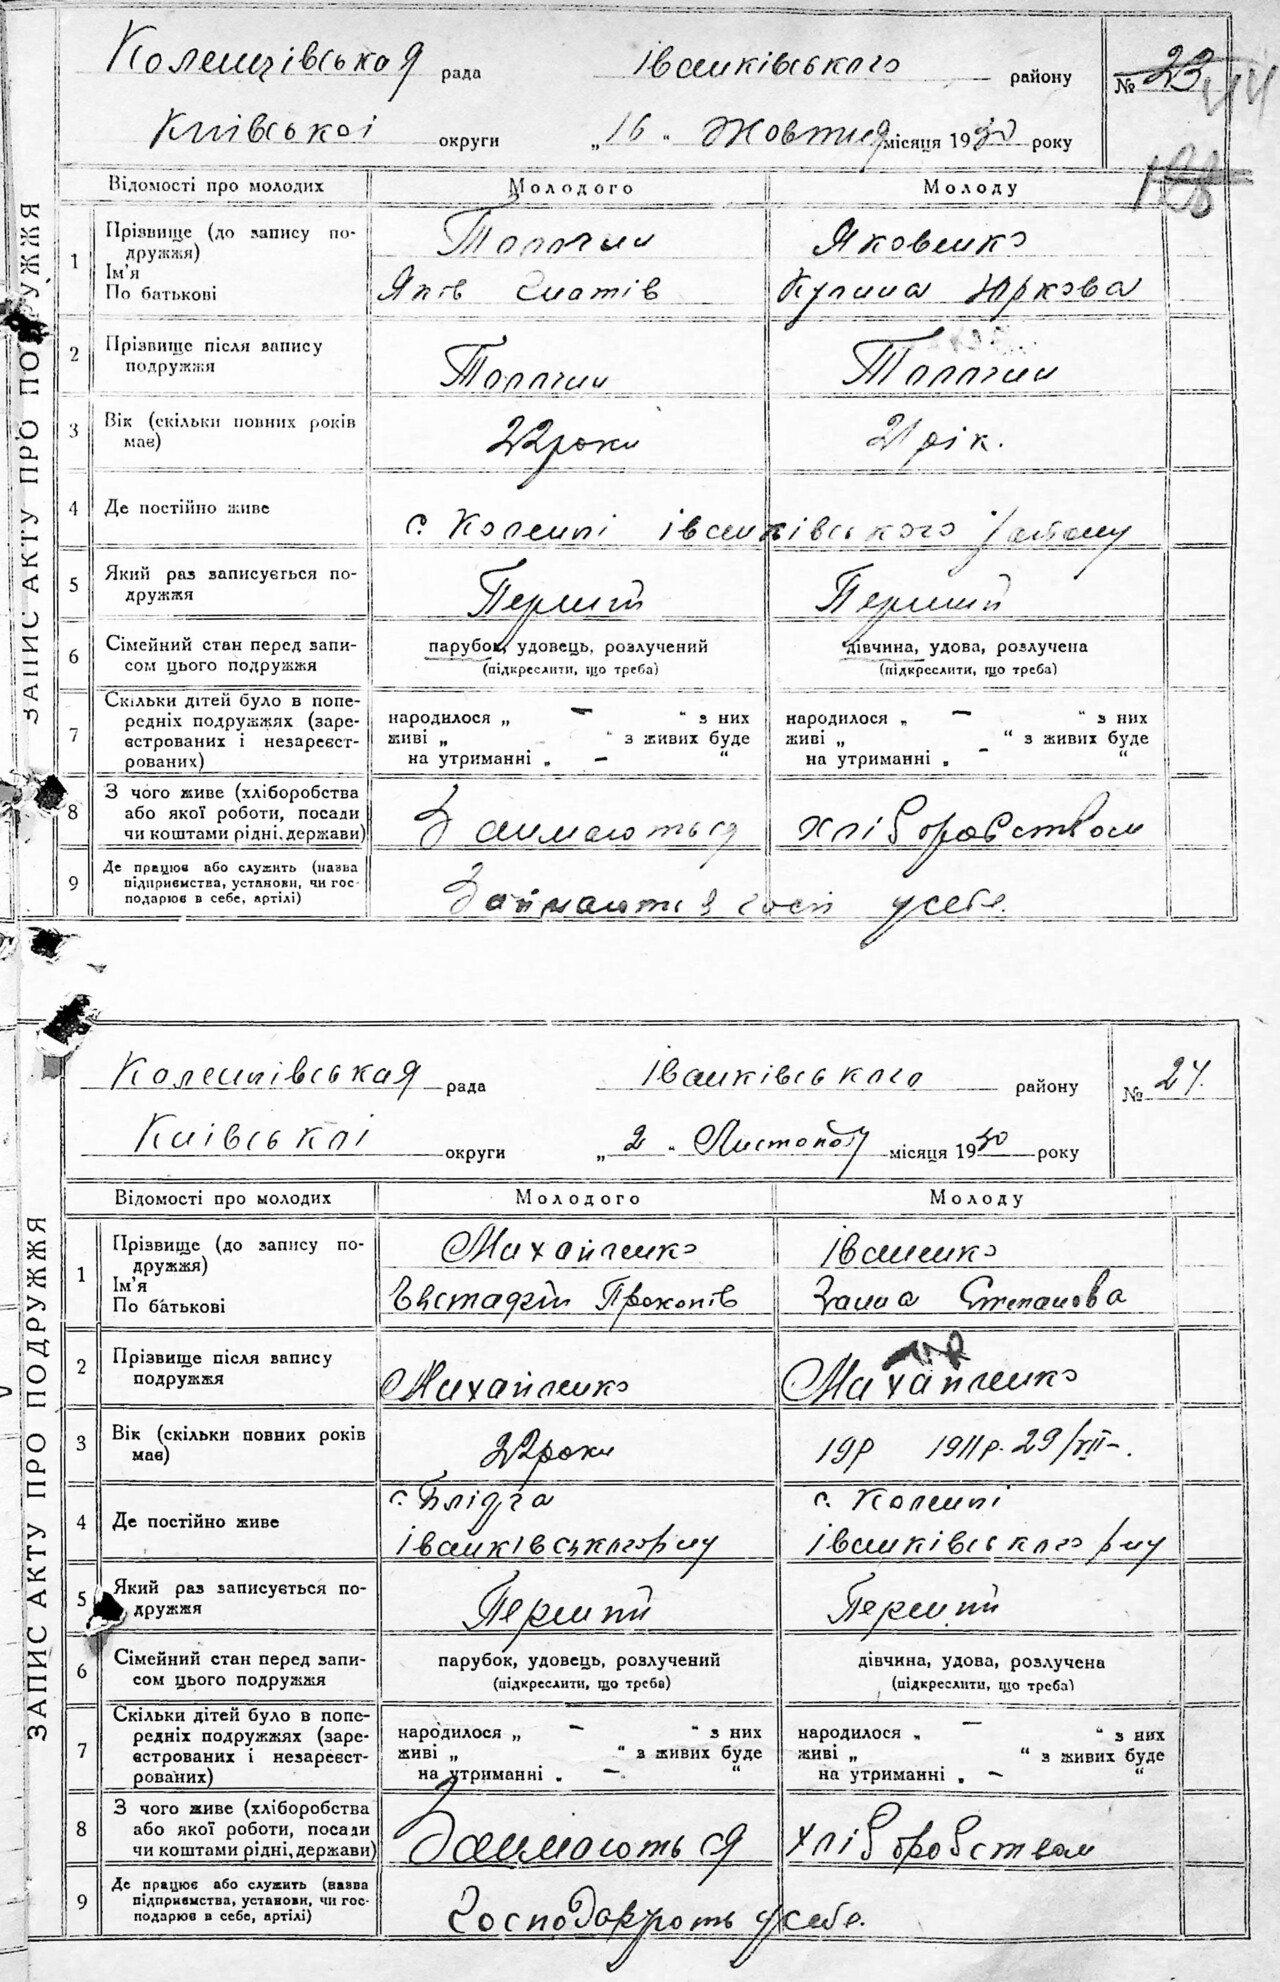 Коленцівськая рада Іванківського району № 23
Київської округи „16“ Жовтня місяця 1930 року
ЗАПИС АКТУ ПРО ПОДРУЖЖЯ
Відомості про молодих Молодого Молоду
1 Прізвище (до запису по-
дружжя)
Яковенко
Ім'я
По батькові Яків Юркова
2 Прізвище після запису
подружжя
3 Вік (скільки повних років
має) 22 роки 21 рік.
4 Де постійно живе с. Коленці іванківського району
5 Який раз записується по-
дружжя Перший Перший
6 Сімейний стан перед запи-
сом цього подружжя
парубок, удовець, розлучений
(підкреслити, що треба)
дівчина, удова, розлучена
(підкреслити, що треба)
7 Скільки дітей було в попе-
редніх подружжях (заре-
єстрованих і незареєст-
рованих)
народилося „ — “ з них
живі „ “ з живих буде
на утриманні „ — “
народилося „ — “ з них
живі „ “ з живих буде
на утриманні „ — “
8 З чого живе (хліборобства
або якої роботи, посади
чи коштами рідні, держави)
Заимаються хліборобством
9 Де працює або служить (назва
підприємства, установи, чи гос-
подарює в себе, артілі)
у себе.
Коленцівськая рада Іванківського району № 24.
Київської округи „2“ Листопаду місяця 1930 року
ЗАПИС АКТУ ПРО ПОДРУЖЖЯ
Відомості про молодих Молодого Молоду
1 Прізвище (до запису по-
дружжя)
Михайленко Іваненко
Ім'я
По батькові Євстафій Прокопів Степанова
2 Прізвище після запису
подружжя Михайленко Михайленко
3 Вік (скільки повних років
має) 22 роки 19р 1911р. 29/VII-.
4 Де постійно живе
с. Блідча
іванківського р-ну
с. Коленці
іванківського р-ну
5 Який раз записується по-
дружжя Перший Перший
6 Сімейний стан перед запи-
сом цього подружжя
парубок, удовець, розлучений
(підкреслити, що треба)
дівчина, удова, розлучена
(підкреслити, що треба)
7 Скільки дітей було в попе-
редніх подружжях (заре-
єстрованих і незареєст-
рованих)
народилося „ — “ з них
живі „ “ з живих буде
на утриманні „ — “
народилося „ — “ з них
живі „ “ з живих буде
на утриманні „ — “
8 З чого живе (хліборобства
або якої роботи, посади
чи коштами рідні, держави)
Заимаються хліборобством
9 Де працює або служить (назва
підприємства, установи, чи гос-
подарює в себе, артілі)
Господарують у себе.